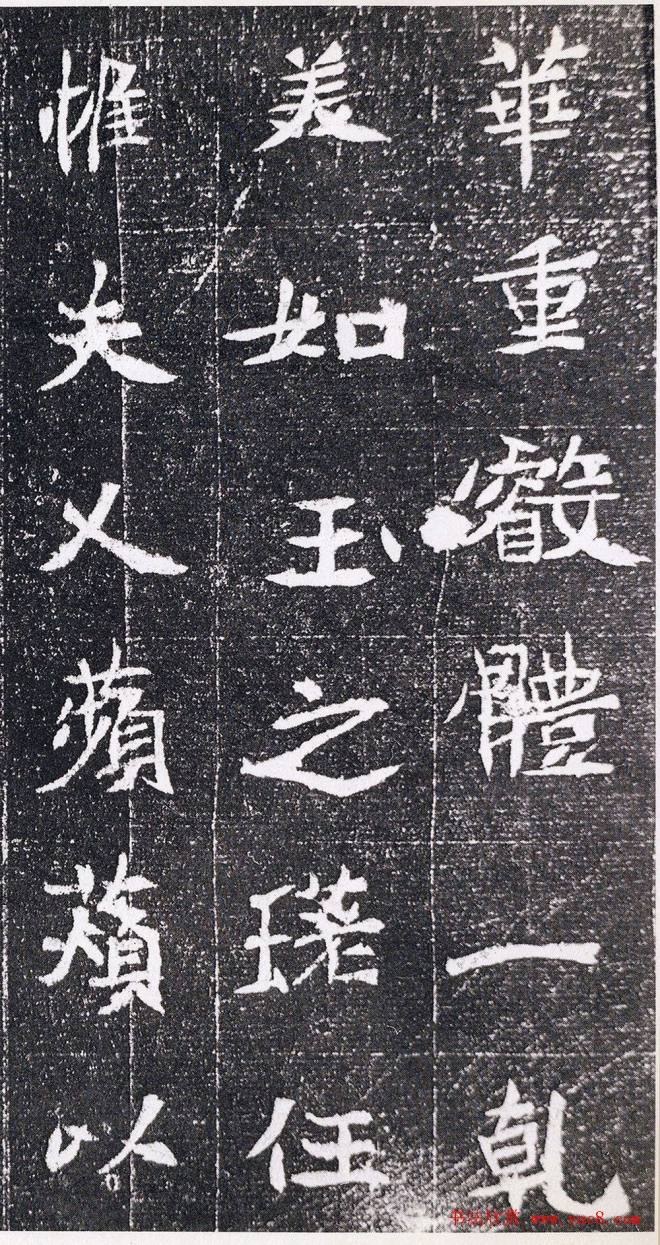 華重叡體一乾
美如玉之任
惟夫人蘋薠以
书法欣赏 www.yac8.com